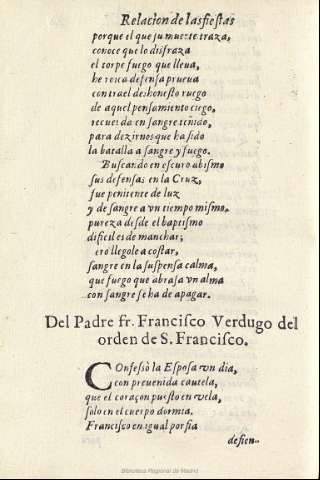 Relacion de las fiestas
porque el que su muerte traza,
conoce que lo disfraza
el torpe fuego que lleva,
heroica defensa prueva
contra el deshonesto ruego
de aquel pensamiento ciego,
recuerda en sangre teñido,
para dezirnos que ha sido
la batalla a sangre y fuego.
Buscando en escuro abismo
sus defensas en la Cruz,
fue penitente de luz
y de sangre a vn tiempo mismo,
pureza desde el baptismo
dificil es de manchar;
ero llegole a costar,
sangre en la suspensa calma,
que fuego que abrasa vn alma
con sangre se ha de apagar.
Del Padre fr. Francisco Verdugo del
orden de S. Francisco.
COnfessò la Esposa vn dia,
con prevenida cautela,
que el coraçon puesto en vela,
solo en el cuerpo dormia.
Francisco en igual porfia
defien-
Biblioteca Regional de Madrid